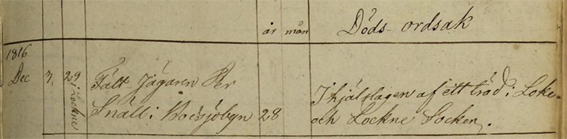 år mån Döds ordsak
1816
Dec 3. 29 i Lockne Fält Jägaren Per
Snäll i Bodsjöbyn 28 Ihjälslagen af ett träd i Loke
och Lockne Socken.